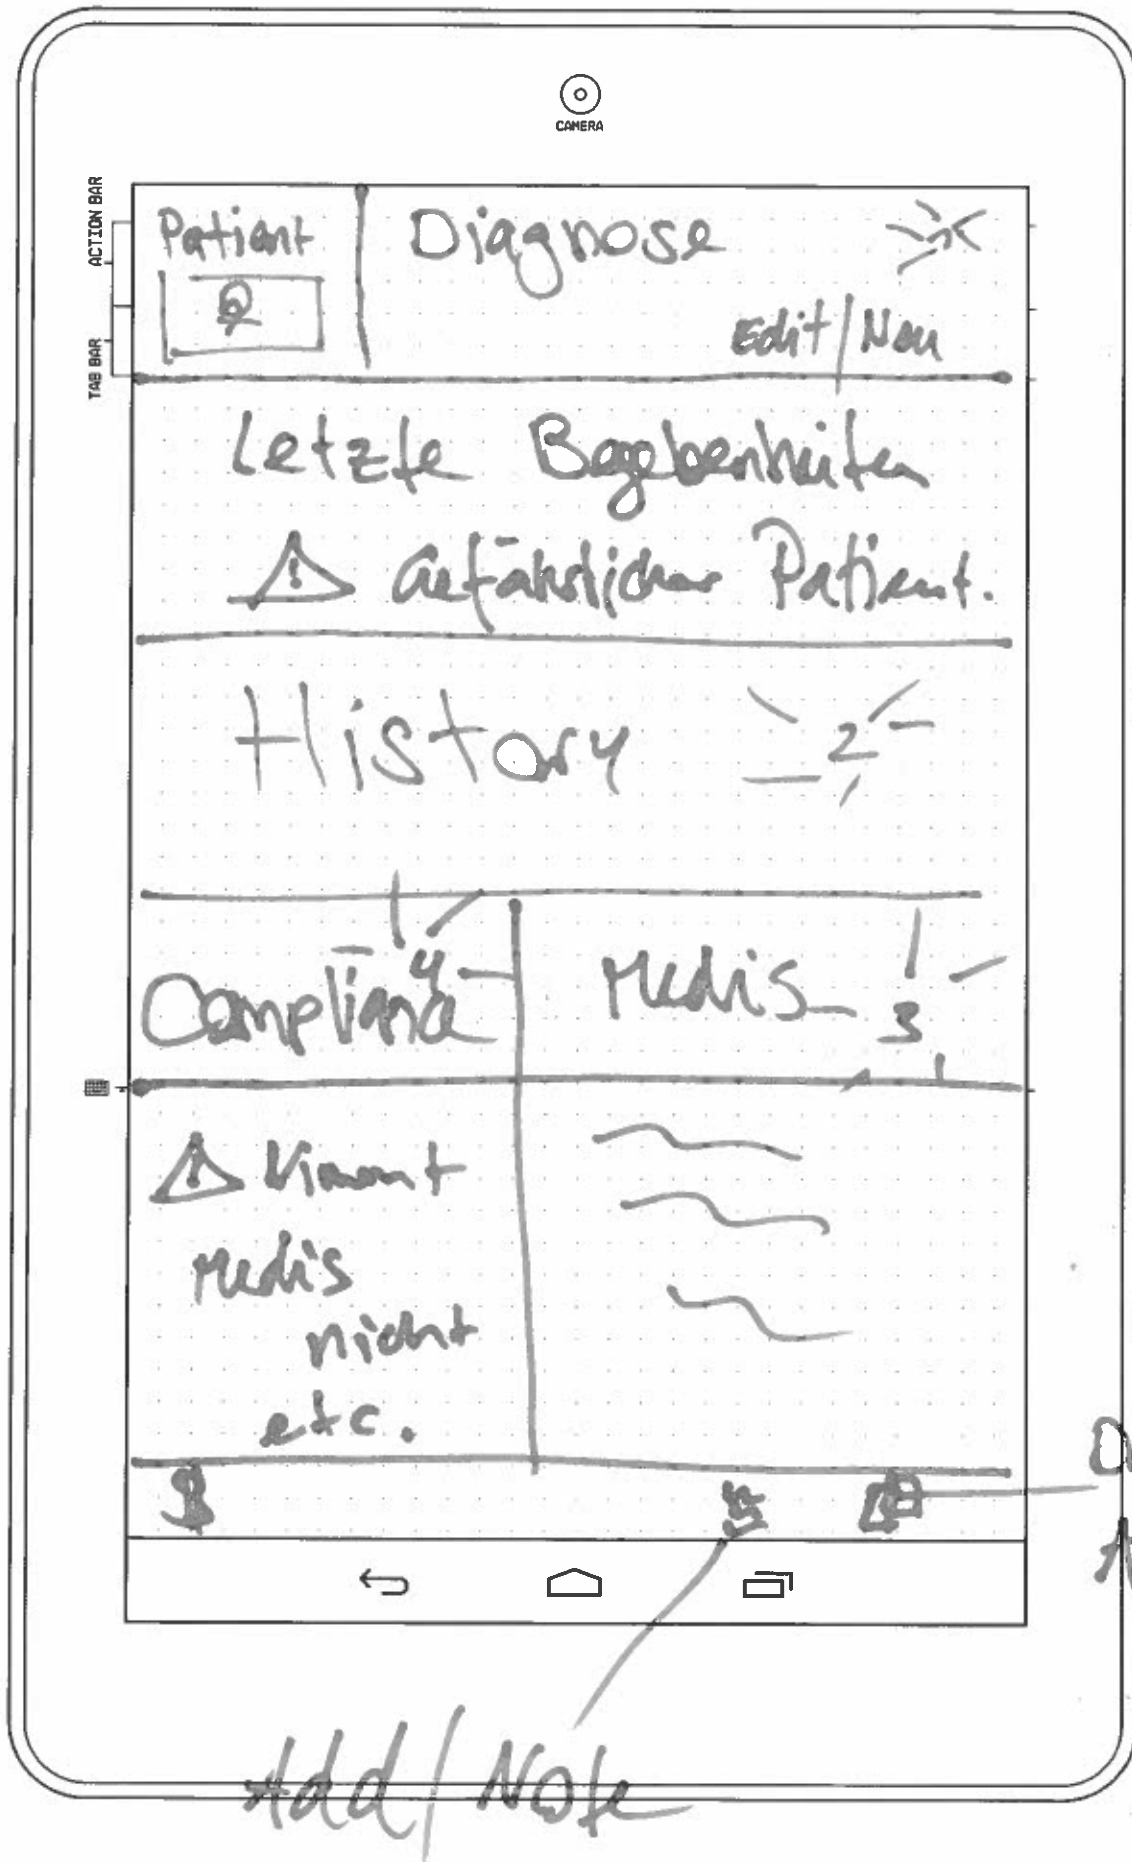 CAMERA
ACTION BAR
TAB BAR
Patient
Diagnose
Edit/Neu
Letzte Begebenheiten
! Gefährlicher Patient.
History 2
Compliance 4
Medis 3
! Nimmt
Medis
nicht
etc.
Add/Note